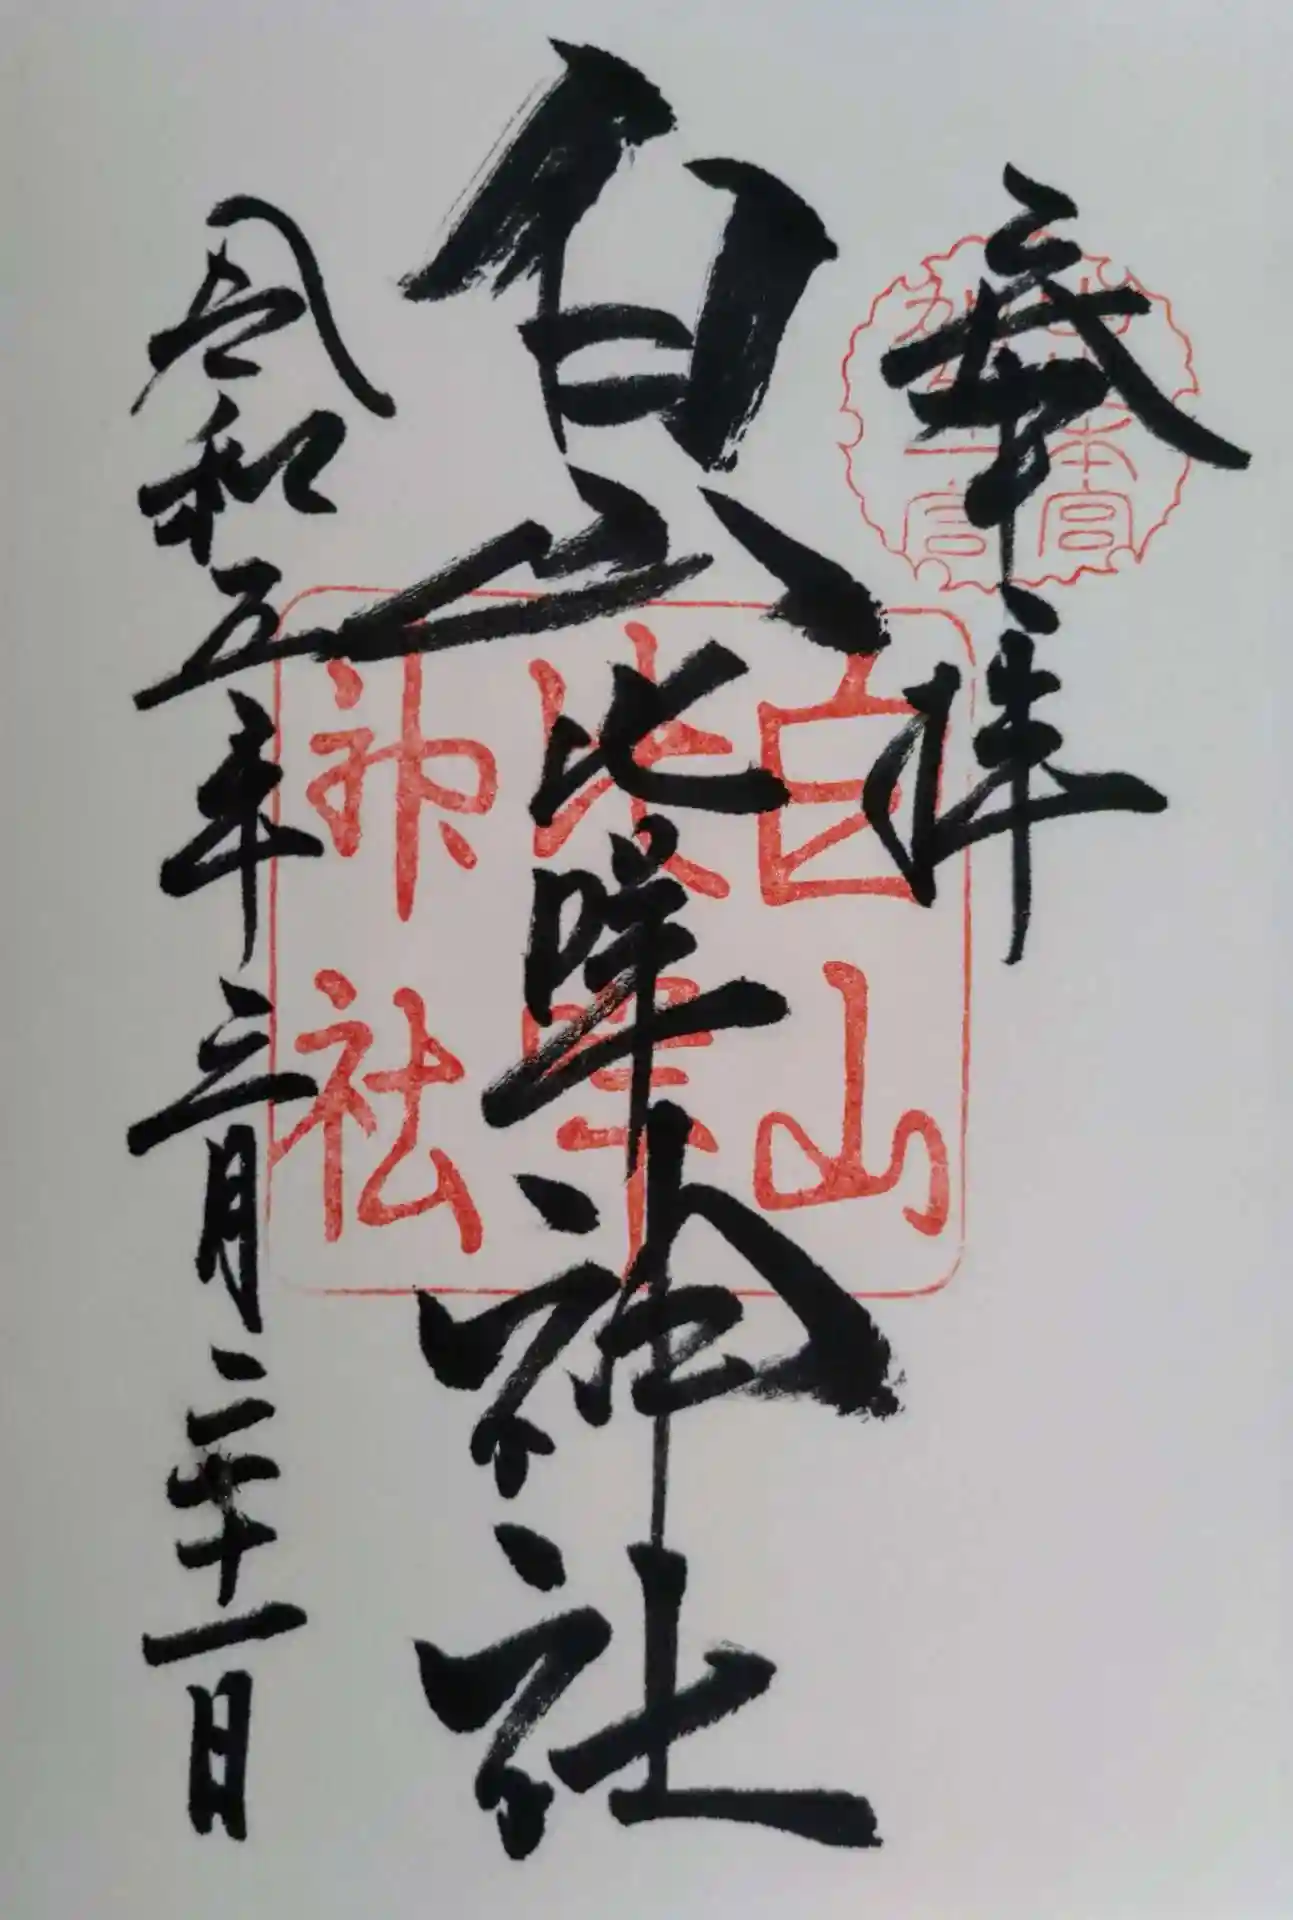 奉拝
白山本宮
加賀一宮
白山比咩神社
白山
比咩
神社
令和五年三月二十一日